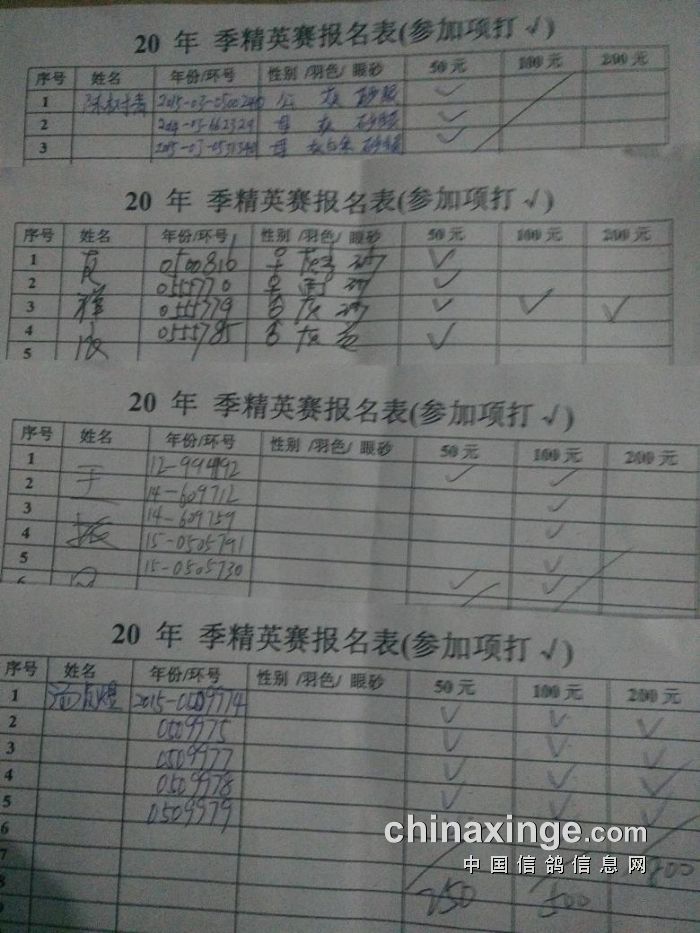 20 年 季精英赛报名表(参加项打 √)
序号 姓名 年份/环号 性别 /羽色/ 眼砂 50 元 100 元 200 元
1 2015-03-0500240 公 灰 砂眼 ✓
2 2014-03-662329 母 灰 砂眼 ✓
3 2015-03- 母 砂眼 ✓
20 年 季精英赛报名表(参加项打 √)
序号 姓名 年份/环号 性别 /羽色/ 眼砂 50 元 100 元 200 元
1 0500810 砂 ✓
2 0555770 雨 砂 ✓
3 祥 0555779 灰 砂 ✓ ✓ ✓
4 0555785 灰 ✓
5
20 年 季精英赛报名表(参加项打 √)
序号 姓名 年份/环号 性别 /羽色/ 眼砂 50 元 100 元 200 元
1 12-994192 ✓ ✓
2 于 14-609712 ✓
3 14-609759 ✓
4 振 15-0505791 ✓
5 15-0505730 ✓ ✓
6
20 年 季精英赛报名表(参加项打 √)
序号 姓名 年份/环号 性别 /羽色/ 眼砂 50 元 100 元 200 元
1 2015-0509974 ✓ ✓ ✓
2 0509975 ✓ ✓ ✓
3 0509977 ✓ ✓ ✓
4 0509978 ✓ ✓ ✓
5 0509979 ✓ ✓ ✓
6
7
8 250 500
9
chinaxinge.com
中国信鸽信息网